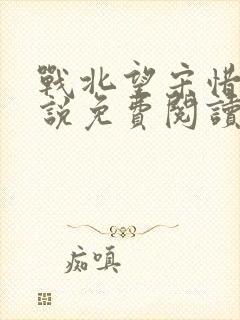 戰北望宋惜
說免費閱讀
痴嗔